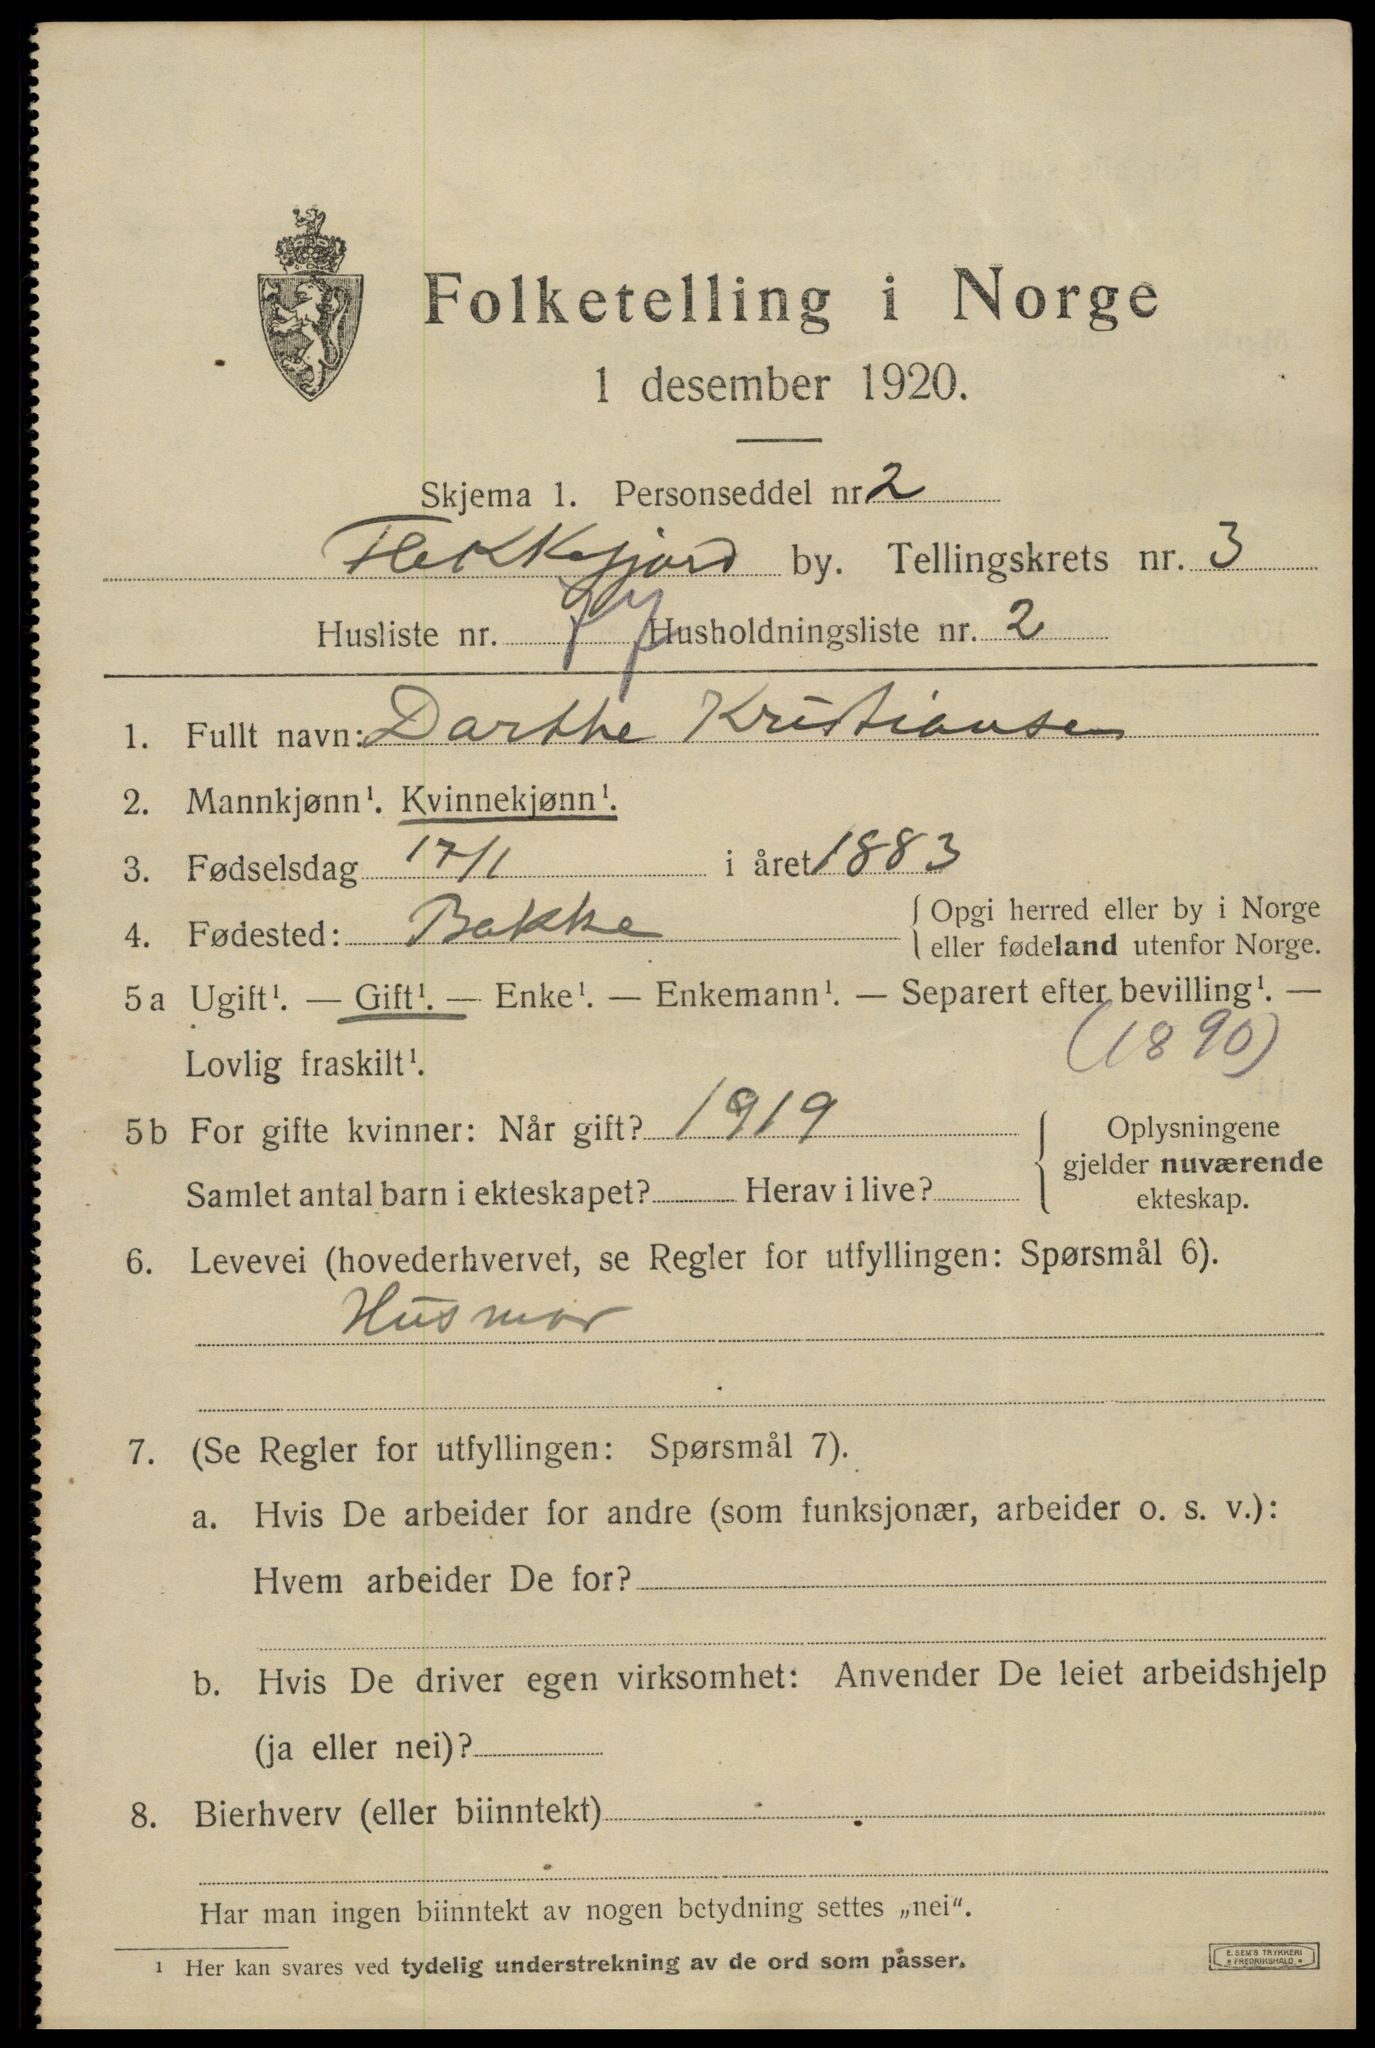 Folketelling i Norge
1 desember 1920.
Skjema 1. Personseddel nr 2
Flekkefjord by. Tellingskrets nr. 3
Husliste nr. 77 Husholdningsliste nr. 2
1. Fullt navn: Darthe Kristiansen
2. Mannkjønn¹. Kvinnekjønn¹.
3. Fødselsdag 17/1 i året 1883
4. Fødested: Bakke { Opgi herred eller by i Norge
eller fødeland utenfor Norge.
5 a Ugift¹. — Gift¹. — Enke¹. — Enkemann¹. — Separert efter bevilling¹. —
Lovlig fraskilt¹. (1890)
5 b For gifte kvinner: Når gift? 1919
Samlet antal barn i ekteskapet? Herav i live?
Oplysningene
gjelder nuværende
ekteskap.
6. Levevei (hovederhvervet, se Regler for utfyllingen: Spørsmål 6).
Husmor
7. (Se Regler for utfyllingen: Spørsmål 7).
a. Hvis De arbeider for andre (som funksjonær, arbeider o. s. v.):
Hvem arbeider De for?
b. Hvis De driver egen virksomhet: Anvender De leiet arbeidshjelp
(ja eller nei)?
8. Bierhverv (eller biinntekt)
Har man ingen biinntekt av nogen betydning settes „nei“.
¹ Her kan svares ved tydelig understrekning av de ord som passer.
E. SEM'S TRYKKERI
FREDRIKSHALD